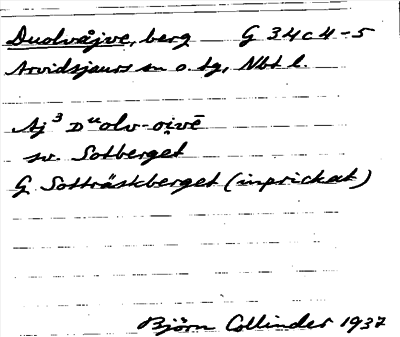 Duolvåjve, berg G 34c4-5
Arvidsjaurs sn o. tg, Nbt l.
Aj³ Duolv-oi̯vē
sv. Sotberget
G Sotträskberget (inprickat)
Björn Collinder 1937